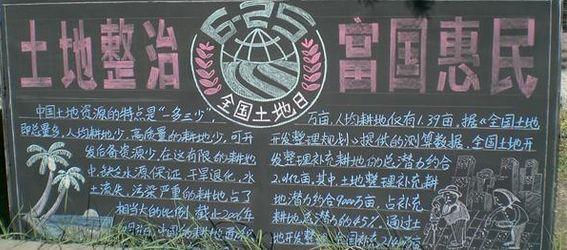 土地整治 富国惠民
6·25
全国土地日
中国土地资源的特点是“一多三少”,
即总量多,人均耕地少,高质量的耕地少,可开
发后备资源少。在这有限的耕地
中,缺乏水源保证、干旱退化、水
土流失、污染严重的耕地占了
相当大的比例。截止
中国的耕地面积
万亩,人均耕地仅有1.39亩。据《全国土地
开发整理规划》提供的测算数据,全国土地开
发整理补充耕地的总潜力约合
2.01亿亩,其中土地整理补充耕
地潜力约合9000万亩,占补充
耕地总潜力的45%。通过土
地开发整理,全国补充